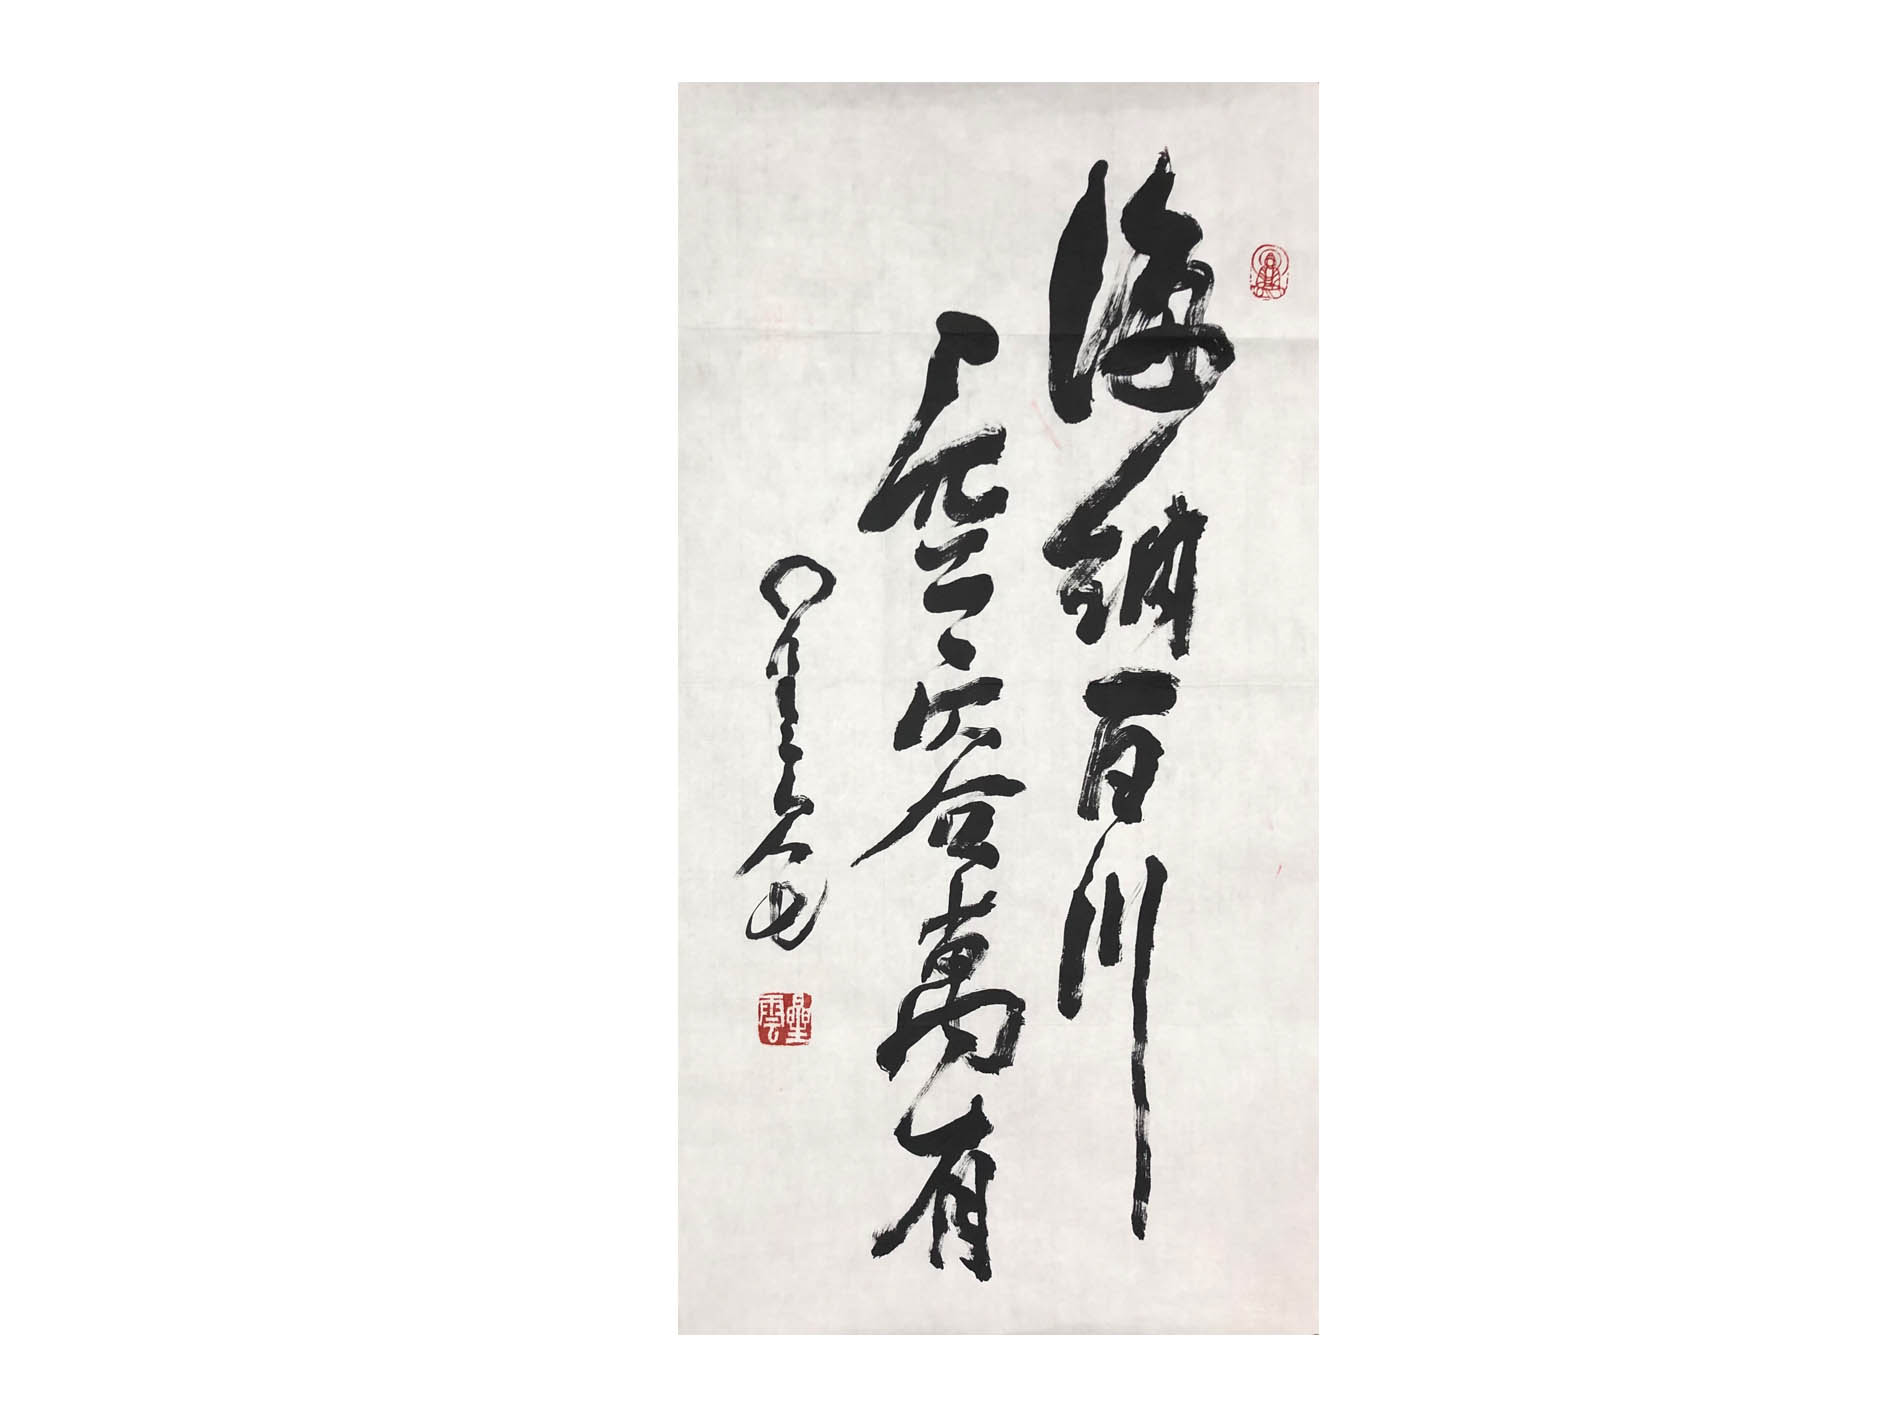 海納百川
虛容萬有
星雲
星雲